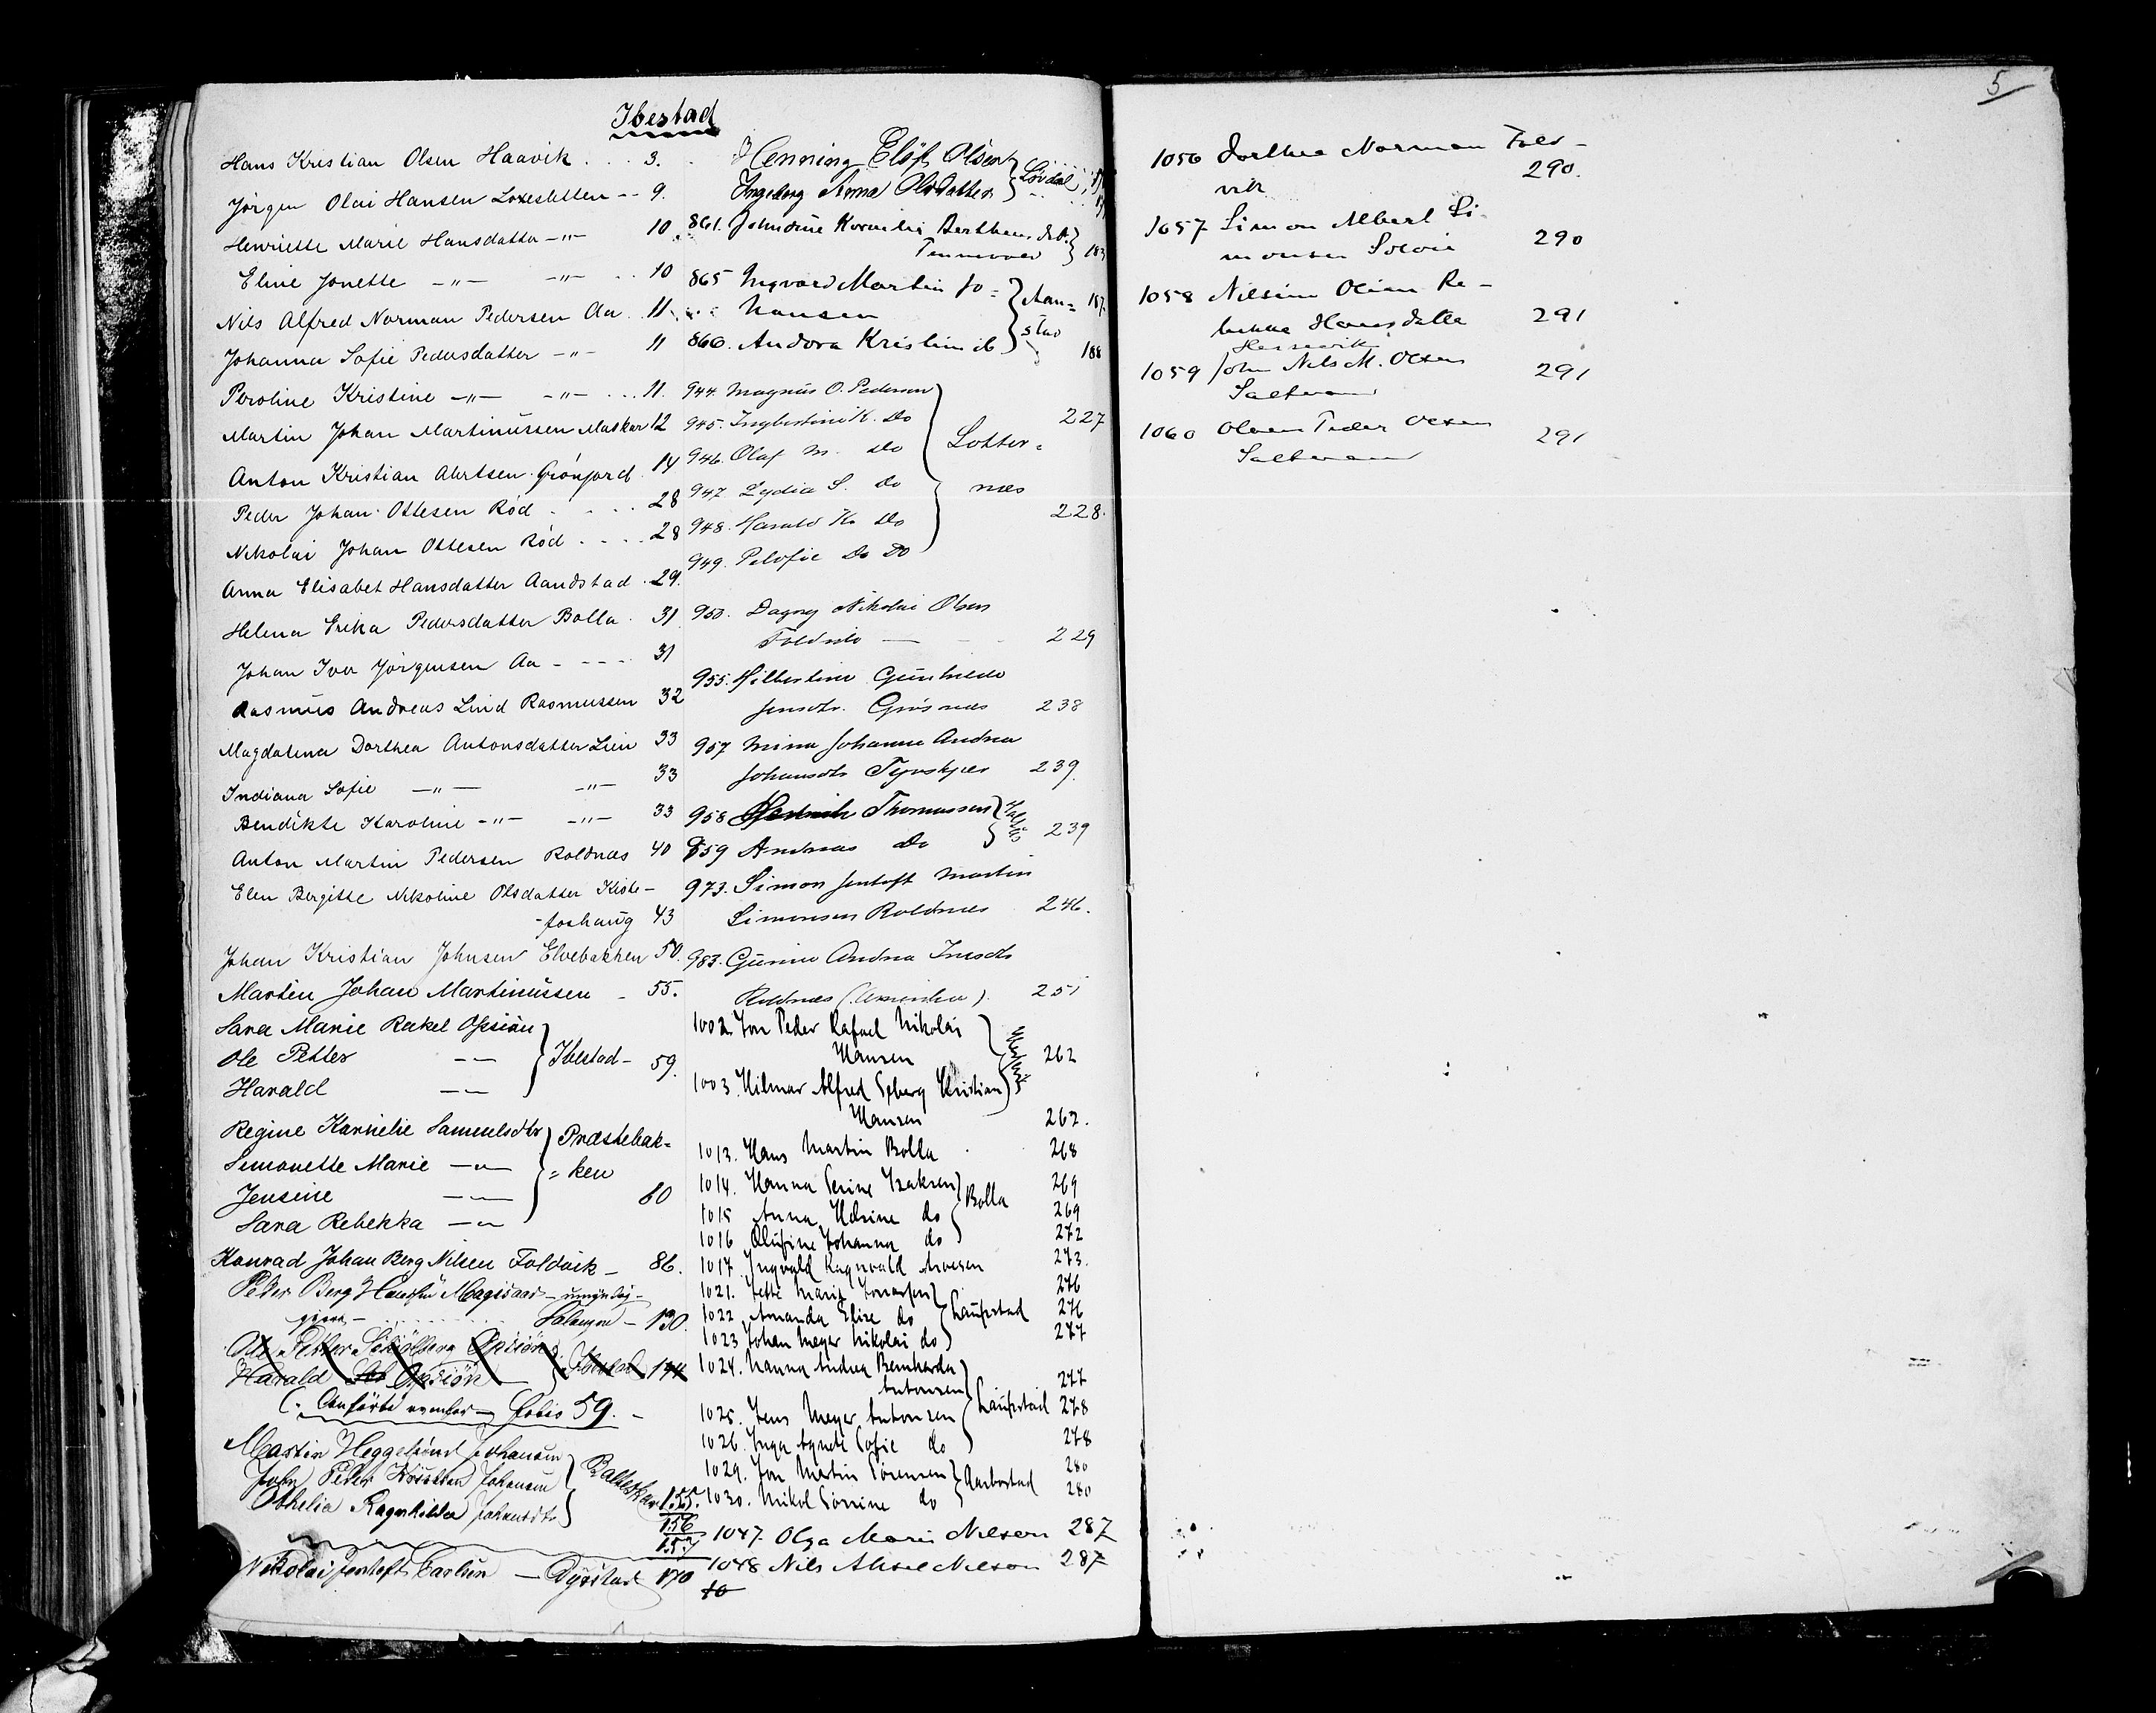 Ibestad
Hans Kristian Olsen Haavik . . . 3.
Jörgen Olai Hansen Loxesletten - - 9.
Henriette Marie Hansdatter -"- 10
Eline Jonette -"- -"- . . 10
Nils Alfred Norman Pedersen Aa . 11
Johanna Sofie Pedersdatter -"- 11
Peroline Kristine -"- -"- . . . 11.
Martin Johan Martinussen Maskar 12
Anton Kristian Ahrtsen Grönjord 14
Peder Johan Ottesen Röd . . . . 28
Nikolai Johan Ottesen Röd . . . . 28
Anna Elisabet Hansdatter Aandstad . 29.
Helena Erika Pedersdatter Bolla . 31
Johan Iver Jörgensen Aa - - - - 31
Rasmus Andreas Lind Rasmussen 32
Magdalena Dorthea Antonsdatter Lien 33
Indiana Sofie -"- -"- 33
Bendikte Karoline -"- -"- 33
Anton Martin Pedersen Roldnæs 40
Elen Bergitte Nikoline Olsdatter Kiste-
-foshaug 43
Johan Kristian Johnsen Elvebakken 50.
Martin Johan Martinussen - 55.
Sara Marie Rakel Opsiön
Ole Petter -"- Ibestad - 59.
Harald -"-
Regine Karnelie Samuelsdtr Præstebak=
Simonette Marie -"- = ken
Jensine -"- 60
Sara Rebekka -"-
Konrad Johan Berg Nilsen Foldvik - 86.
Peder Berg Magisaar - umyndig-
gjort - Salangen - 130.
Ole Petter Opsiön
Harald Opsiön Ibestad 144
(Anförte ovenfor folio 59. -
Martin Heggelund Johansen
John Peder Johansen
Othelia Ragnhilda Johansdtr
155.
156
157
Nikolai Jentoft Carlsen - Dyrstad 170
Henning Elöf Olsen Lövdal
Ingeborg Anna Olsdatter
861. Johndine Kornelia Bertheus dtr.
Tennevoll 183
865 Ingvard Martin Jo= Aan= 187.
hansen stad
866. Andora Kristine do 188
944. Magnus O. Pedersen
227
945. Ingbertine K. Do
946. Olaf M. do Lotter=
947. Lydia S. do næs
228.
948. Harald K. Do
949. Pelofie Do Do
950. Dagny Nikolai Olsen
Foldvik - - - 229
955. Hilbertine Gunhilde
Jensdtr. Grösnæs 238
957 Mina Johanne Andrea
Johansdtr Tyvskjær 239.
958 Thomassen
239
959 Andreas Do
973. Simon Jentoft Martin
Simonsen Roldnæs 246.
983. Gunine Andrea Inesdtr
Roldnæs (Amerika). 251
1002. Jon Peder Rafael Nikolai
Hansen 262
1003. Hilmar Alfred Kristian
Hansen 262.
1013. Hans Martin Bolla 268
1014. Hanna Serine Isaksen 269
Bolla
1015 Anna do 269
1016 Olufine Johanna do 272
1017 Ingvald Ragnvald Arvesen 273.
1021. Jette Marie 276
1022 Amanda Elise do Laupstad 276
1023 Johan Meyer Nikolai do 277
1024. Nanna Andrea Bernharda
Antonsen 277
1025. Jens Meyer Antonsen Laupstad 278
1026. Inga Agnete Sofie do 278
1029. Jon Martin Sörensen Aarbostad 280
1030. Nikol Sörine do 280
1047. Olga Marie Nilsen 287
1048 Nils Aksel Nilsen 287
10
5
1056 Dorthea Norman Fold-
vik 290.
1057 Simon Albert Si-
monsen Sovie 290
1058 Nilsine Oline Re-
bekka Hansdatter 291
Hessevik
1059 John Nils M. Olsen
Saltvand 291
1060 Olaus Peder Olsen
Saltvand 291